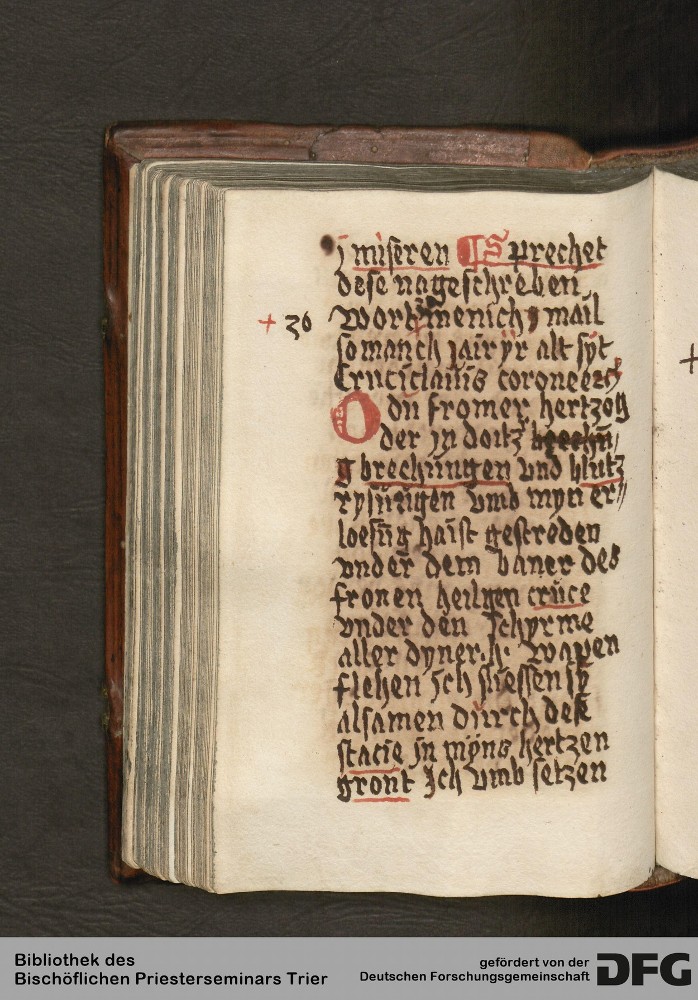 j miseren ¶ Sprechet
dese nageschreben
+ 36 wort menich mail
so manch jair yr alt syt
Cruci clauis corone etc
O du fromer hertzog
der jn doitz
g brechungen vnd blutz
rysungen vmb myn er//
loesūg haist gestreden
vnder dem baner des
fronen heilgen cruce
vnder den schyrme
aller dyner h. wapen
flehen Ich sliessen sy
alsamen durch dese
stacie jn myns hertzen
gront Ich vmb setzen
Bibliothek des
Bischöflichen Priesterseminars Trier
gefördert von der
Deutschen Forschungsgemeinschaft DFG